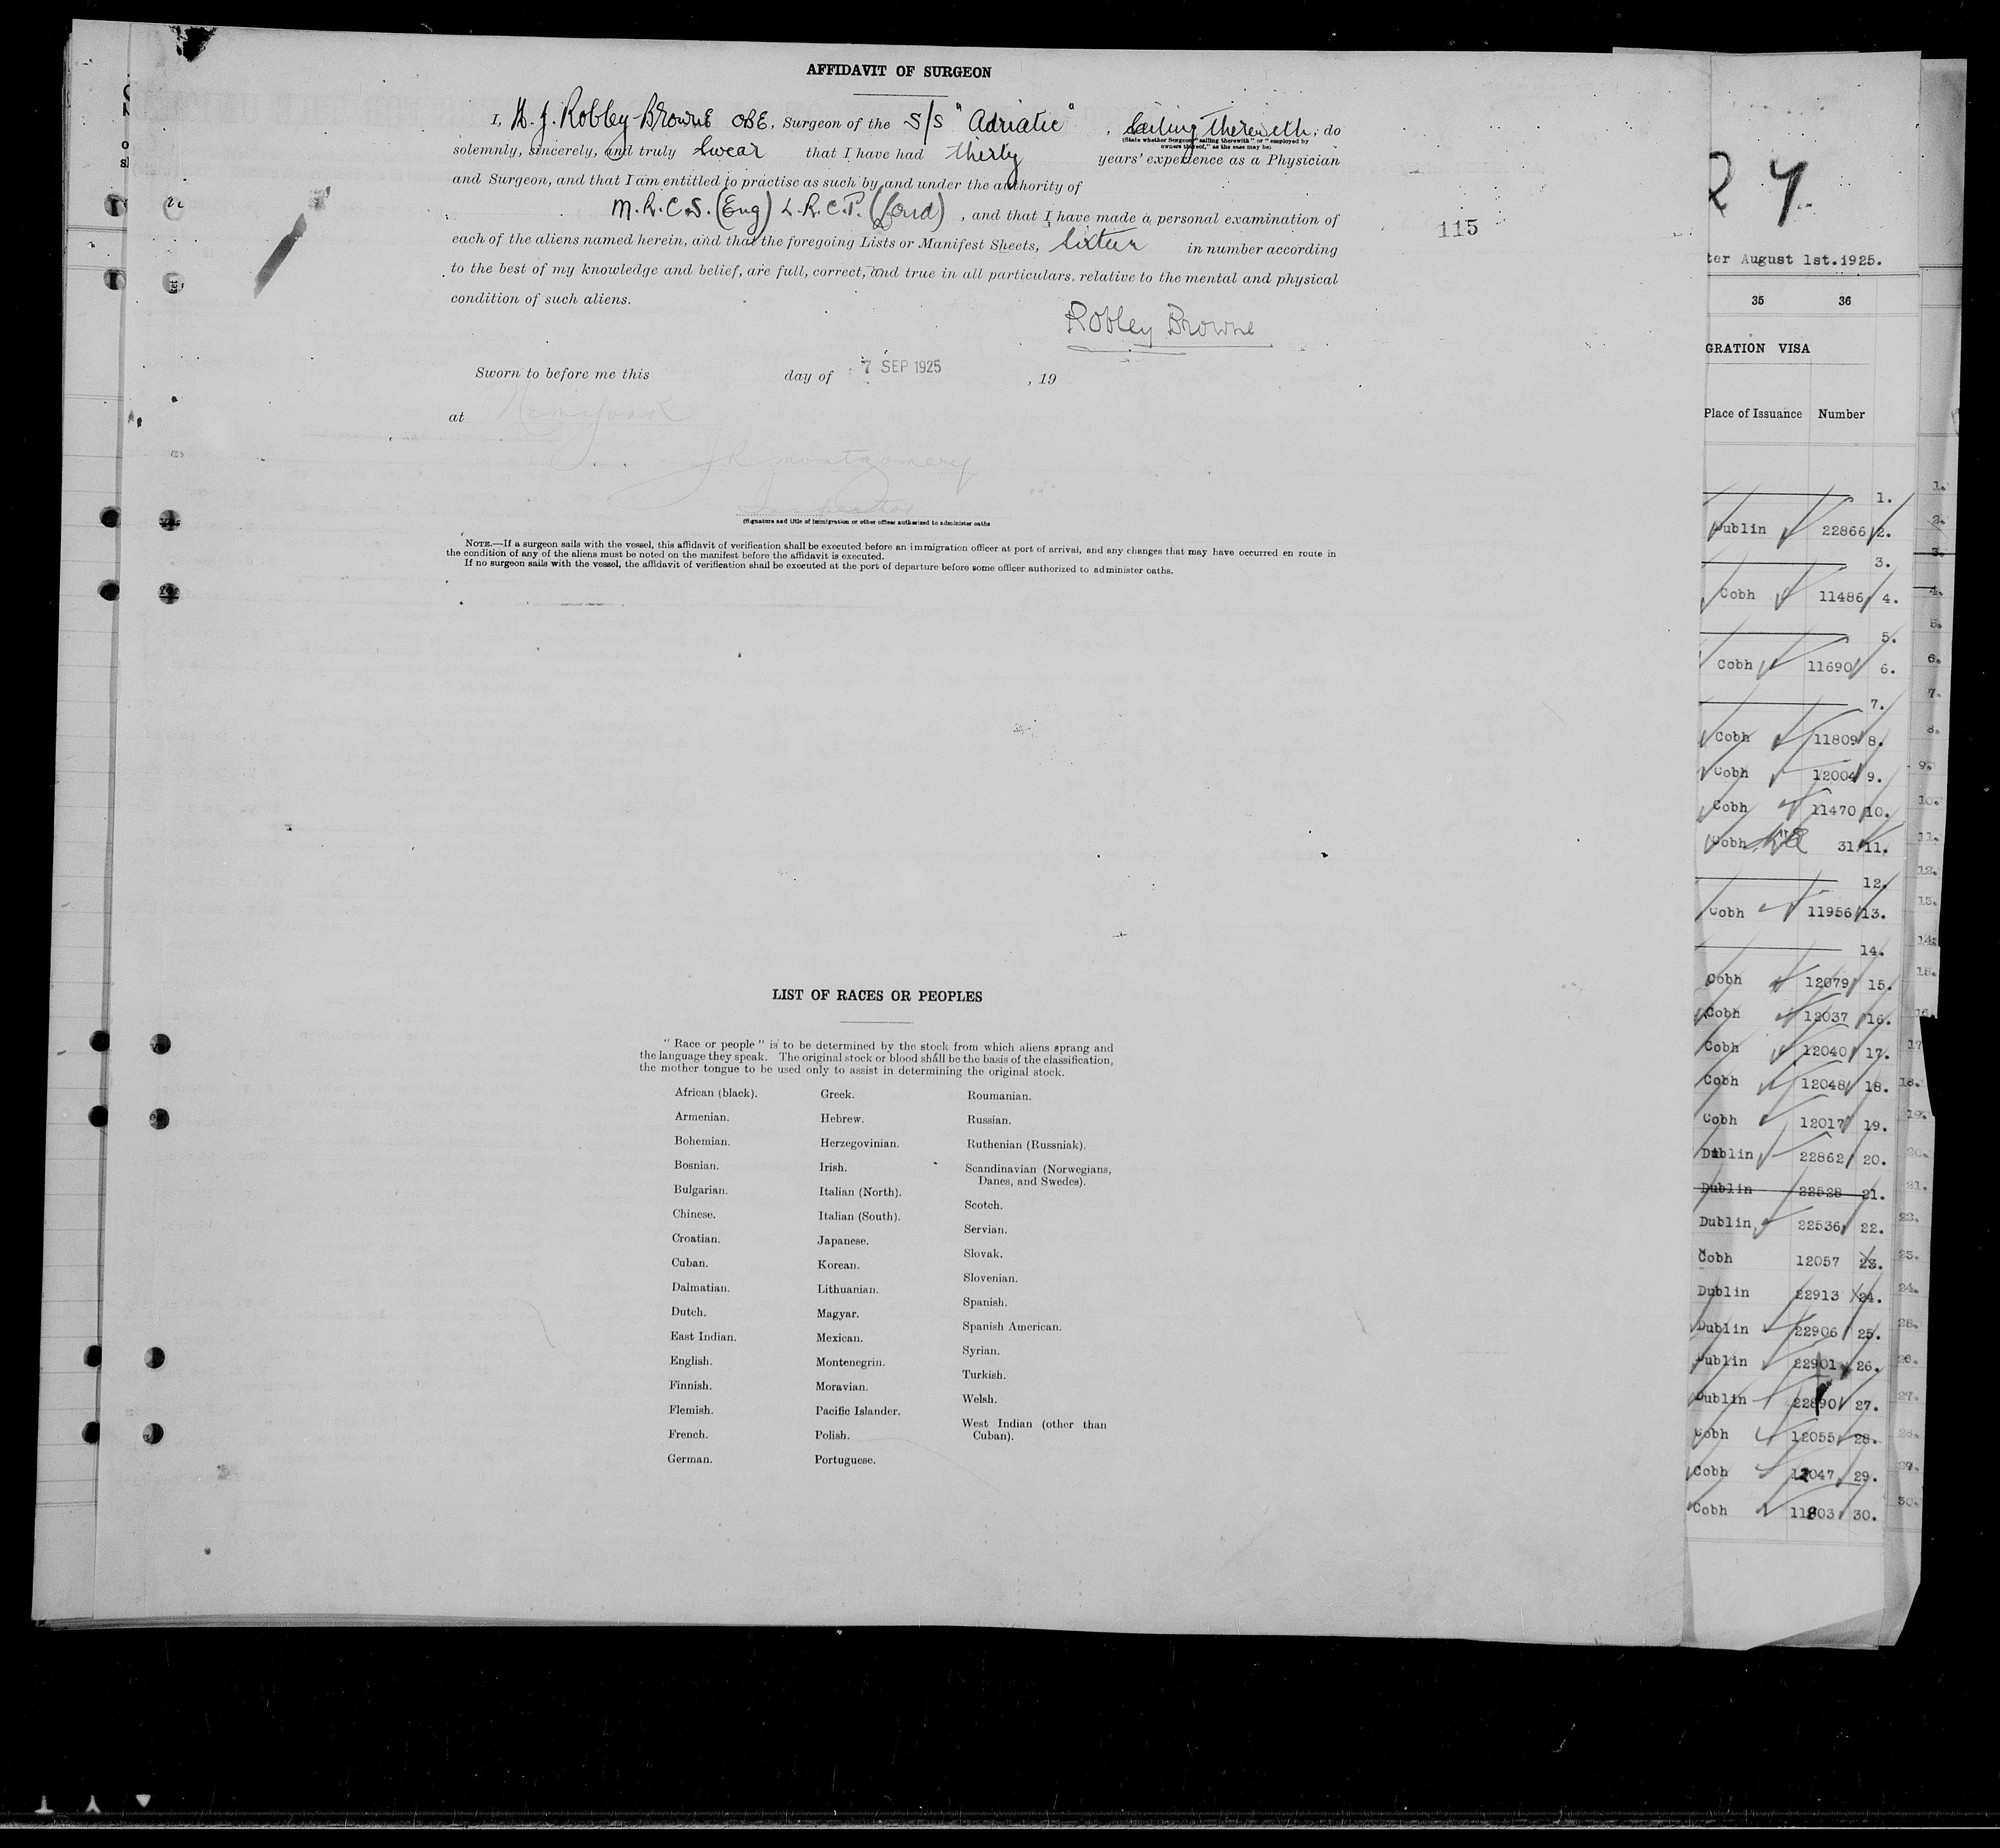 AFFIDAVIT OF SURGEON
I, H. J. Robley-Browne OBE, Surgeon of the S/S "Adriatic", Sailing therewith, do
(State whether Surgeon "sailing therewith" or "employed by
owners thereof," as the case may be)
solemnly, sincerely, and truly Swear that I have had thirty years' experience as a Physician
and Surgeon, and that I am entitled to practise as such by and under the authority of
M.R.C.S. (Eng) L.R.C.P. (Lond), and that I have made a personal examination of
each of the aliens named herein, and that the foregoing Lists or Manifest Sheets, Sixteen in number according
to the best of my knowledge and belief, are full, correct, and true in all particulars, relative to the mental and physical
condition of such aliens.
Robley Browne
115
Sworn to before me this day of 7 SEP 1925, 19
at New York
Montgomery
Inspector
(Signature and title of immigration or other officer authorized to administer oaths
NOTE.—If a surgeon sails with the vessel, this affidavit of verification shall be executed before an immigration officer at port of arrival, and any changes that may have occurred en route in
the condition of any of the aliens must be noted on the manifest before the affidavit is executed.
If no surgeon sails with the vessel, the affidavit of verification shall be executed at the port of departure before some officer authorized to administer oaths.
LIST OF RACES OR PEOPLES
"Race or people" is to be determined by the stock from which aliens sprang and
the language they speak. The original stock or blood shall be the basis of the classification,
the mother tongue to be used only to assist in determining the original stock.
African (black).
Armenian.
Bohemian.
Bosnian.
Bulgarian.
Chinese.
Croatian.
Cuban.
Dalmatian.
Dutch.
East Indian.
English.
Finnish.
Flemish.
French.
German.
Greek.
Hebrew.
Herzegovinian.
Irish.
Italian (North).
Italian (South).
Japanese.
Korean.
Lithuanian.
Magyar.
Mexican.
Montenegrin.
Moravian.
Pacific Islander.
Polish.
Portuguese.
Roumanian.
Russian.
Ruthenian (Russniak).
Scandinavian (Norwegians,
Danes, and Swedes).
Scotch.
Servian.
Slovak.
Slovenian.
Spanish.
Spanish American.
Syrian.
Turkish.
Welsh.
West Indian (other than
Cuban).
7
ter August 1st.1925.
35 36
GRATION VISA
Place of Issuance Number
1.
Dublin 22866 2.
3.
Cobh 11486 4.
5.
Cobh 11690 6.
7.
Cobh 11809 8.
Cobh 12004 9.
Cobh 11470 10.
Cobh 31 11.
12.
Cobh 11956 13.
14.
Cobh 12079 15.
Cobh 12037 16.
Cobh 12040 17.
Cobh 12048 18.
Cobh 12017 19.
Dublin 22862 20.
Dublin 22528 21.
Dublin 22536 22.
Cobh 12057 23.
Dublin 22913 24.
Dublin 22906 25.
Dublin 22901 26.
Dublin 22890 27.
Cobh 12055 28.
Cobh 12047 29.
Cobh 11803 30.